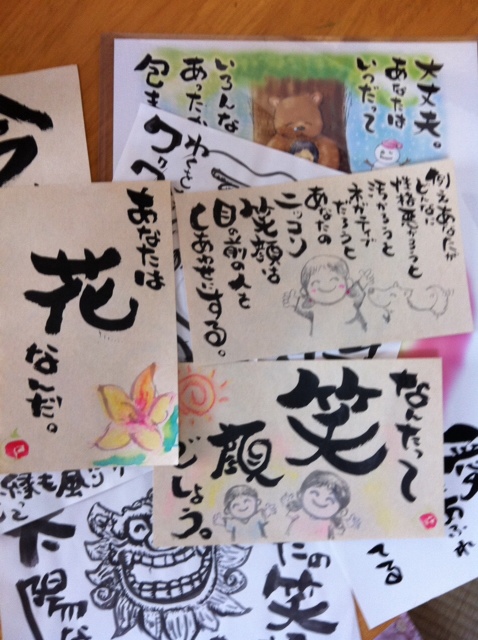 大丈夫。
あなたは
いつだって
いろんな
あったか
包ま
今
ワク
わくと
どんなに
性格悪かろうと
ネガティブ
だろうと
あなたの
ニッコリ
笑顔は
目の前の人を
しあわせにする。
あなたは
花
なんだ。
なんたって
笑
顔
でしょう。
縁も風
太陽
たの笑
愛
てる